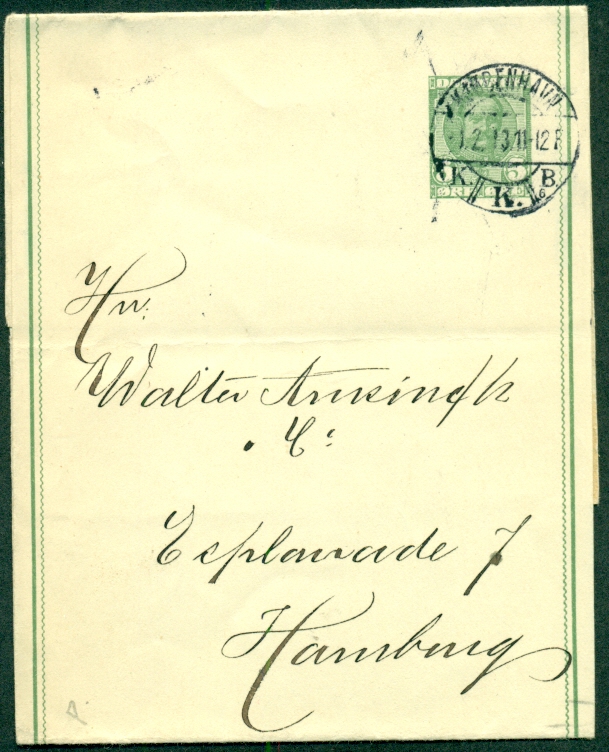 KJØBENHAVN
1.2.13.11-12F
K. B.
K.
5
Hrr.
Walter Amsinck
& Co:
Esplanade 7
Hamburg